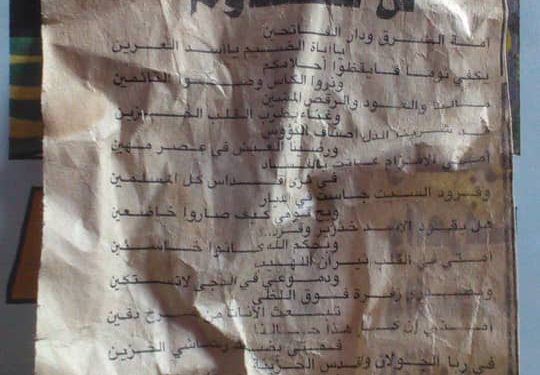 أمة الشرق ودار الفاتحين
يا أباة الضيم يا أسد العرين
يكفي نوما فايقظوا أحلامكم
وذروا الكأس وضحوا النائمين
مالنا والعود والرقص المشين
وغناء يطرب القلب الحزين
قد شربنا الذل أصناف الكؤوس
ورضينا العيش في عصر مهين
أمتي الاقزام عاثت بالبلاد
في أقداس كل المسلمين
وقرود السبت جاست في الديار
ويح قومي كيف صاروا خاضعين
هل يقود الأسد خنزير وقرد
وبحكم الله كانوا خاسئين
أمتي في القلب نيران اللهيب
ودموعي في الدجى لا تستكين
زفرة فوق اللظى
تبعث الأنات من جرح دفين
أمتي إن كان هذا حالنا
الحزين
في ربا الجولان والقدس الحزينة